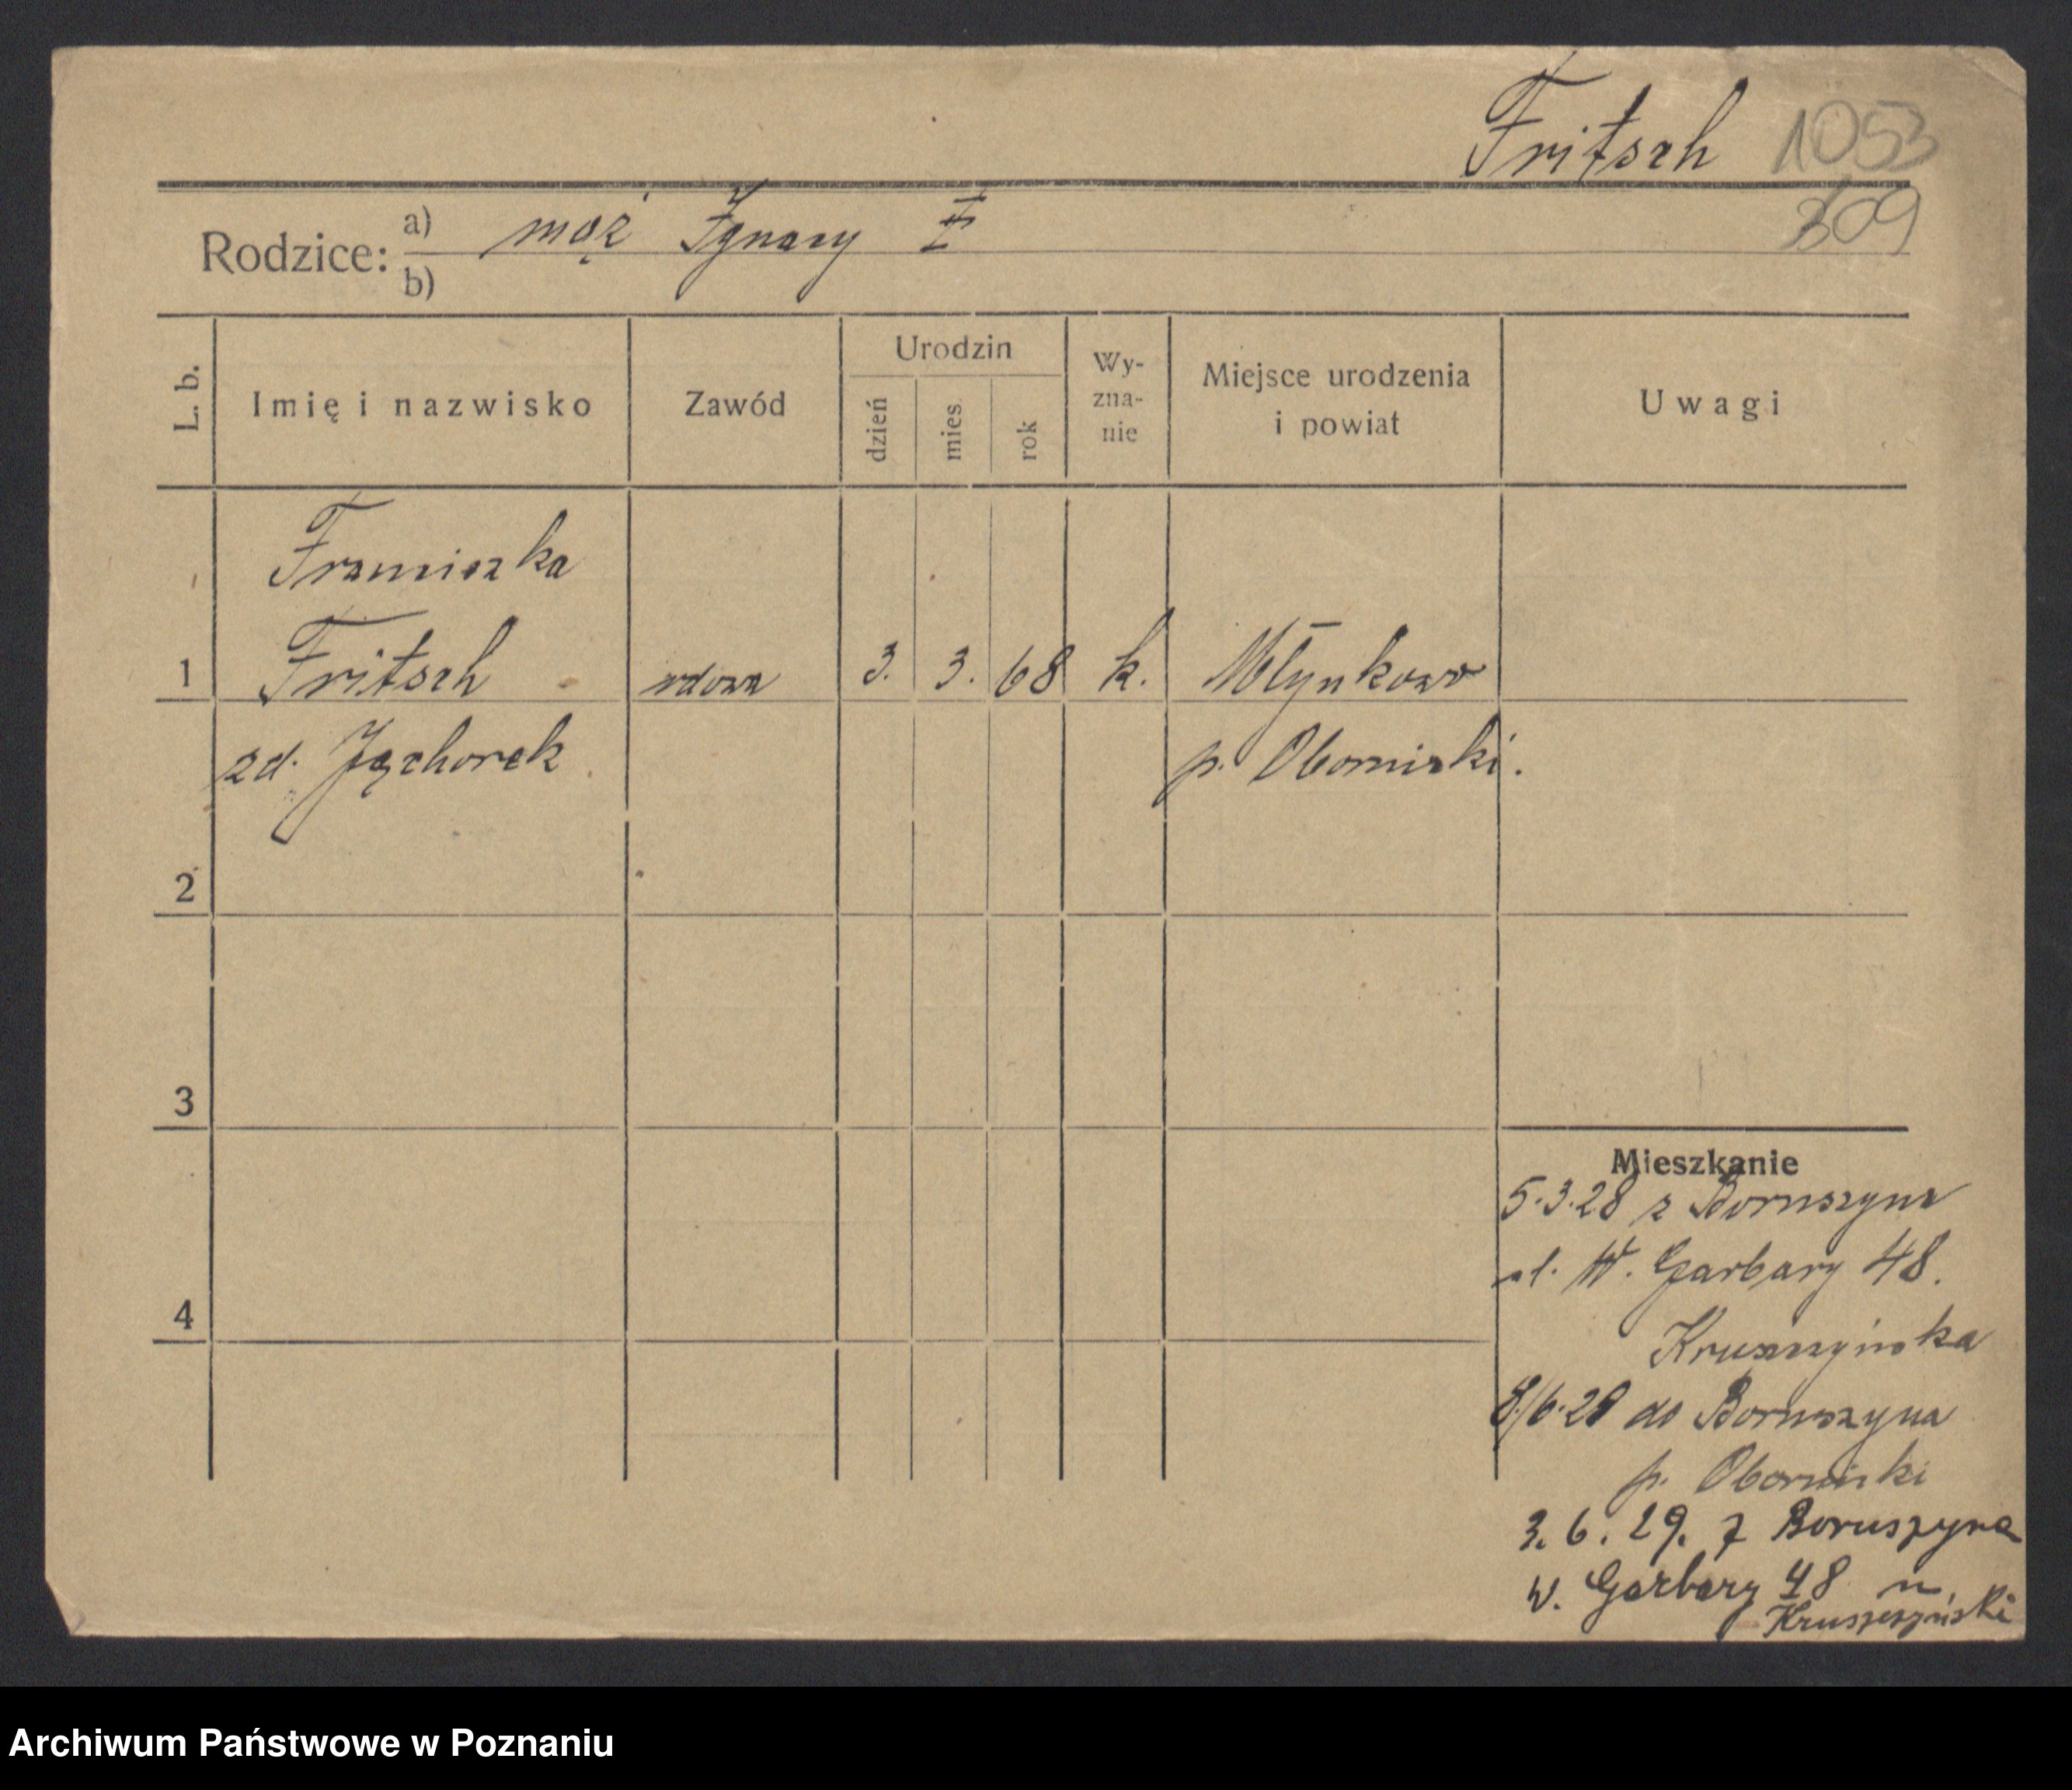 Fritsch 1053
309
Rodzice: a) mąż Ignacy F
b)
L. b.
Imię i nazwisko
Zawód
Urodzin
dzień
mies.
rok
Wy-
zna-
nie
Miejsce urodzenia
i powiat
Uwagi
Franciszka
1 Fritsch wdowa 3. 3. 68 k. Młynkowo
zd. Jęchorek p. Oborniki.
2
3
4
Mieszkanie
5.3.28 z Boruszyna
ul. W. Garbary 48.
Kruszczyńska
8/6.28 do Boruszyna
p. Oborniki
3. 6. 29. z Boruszyna
W. Garbary 48 u
Kruszczyński
Archiwum Państwowe w Poznaniu